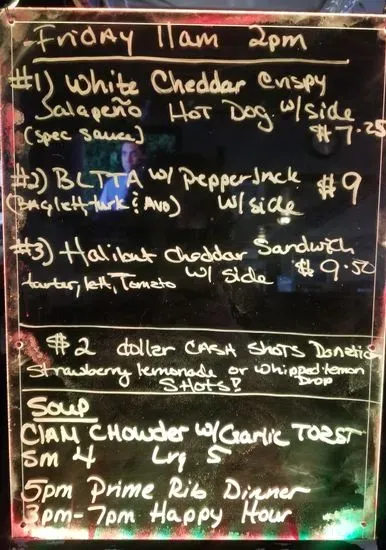 Friday 11am 2pm
#1) White Cheddar Crispy
Jalapeño Hot Dog w/side
(spec sauce) $7.25
#2) BLTTA w/ PepperJack $9
(BAC, lett, turk & Avo) w/side
#3) Halibut Cheddar Sandwich
tarter, lett, Tomato w/ side $9.50
$2 doller CASH SHOTS Donatio
Strawberry lemonade or whipped lemon
Drop
SHOTS!
Soup
ClAM CHowder w/Garlic TOAST
Sm 4 Lrg 5
5pm Prime Rib Dinner
3pm-7pm Happy Hour